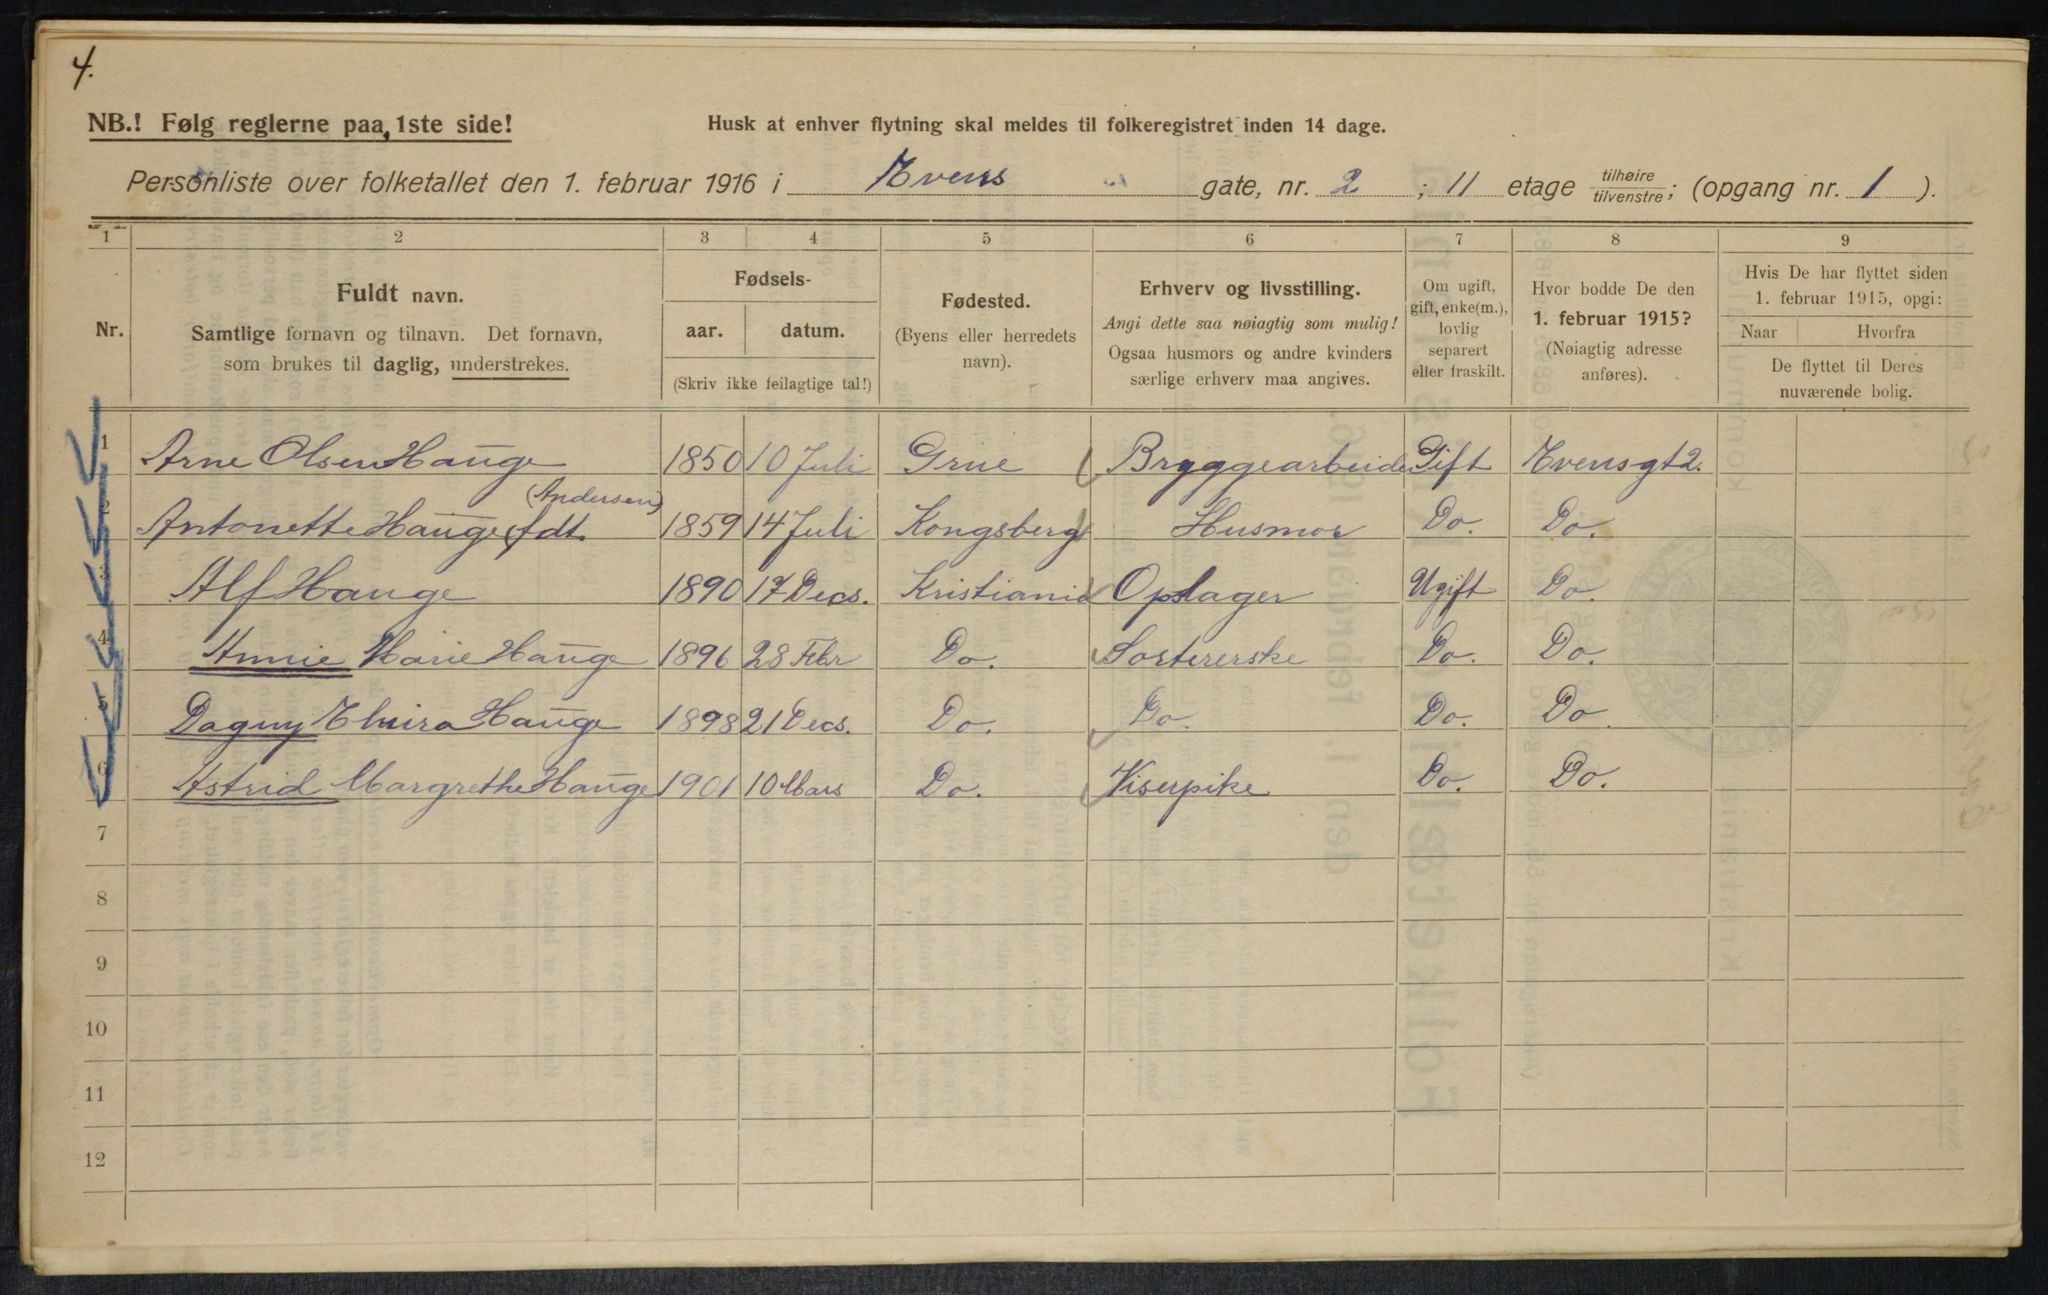 4.
NB.! Følg reglerne paa 1ste side!
Husk at enhver flytning skal meldes til folkeregistret inden 14 dage.
Personliste over folketallet den 1. februar 1916 i Evens gate, nr. 2 ; 11 etage tilhøire/tilvenstre; (opgang nr. 1 ).
1 2 3 4 5 6 7 8 9
Nr.
Fuldt navn.
Samtlige fornavn og tilnavn. Det fornavn,
som brukes til daglig, understrekes.
Fødsels-
aar. datum.
(Skriv ikke feilagtige tal!)
Fødested.
(Byens eller herredets
navn).
Erhverv og livsstilling.
Angi dette saa nøiagtig som mulig!
Ogsaa husmors og andre kvinders
særlige erhverv maa angives.
Om ugift,
gift, enke(m.),
lovlig
separert
eller fraskilt.
Hvor bodde De den
1. februar 1915?
(Nøiagtig adresse
anføres).
Hvis De har flyttet siden
1. februar 1915, opgi:
Naar Hvorfra
De flyttet til Deres
nuværende bolig.
1 Arne Olsen Hauge 1850 10 Juli Grue Bryggearbeider Gift Evensgt 2.
(Andersen)
2 Antonette Hauge fdt. 1859 14 Juli Kongsberg Husmor Do. Do.
3 Alf Hauge 1890 17 Decs. Kristiania Opslager Ugift Do.
4 Annie Marie Hauge 1896 28 Febr Do. Sortererske Do. Do.
5 Dagny Elvira Hauge 1898 21 Decs. Do. Do. Do. Do
6 Astrid Margrethe Hauge 1901 10 Mars Do. Viserpike Do. Do.
7
8
9
10
11
12